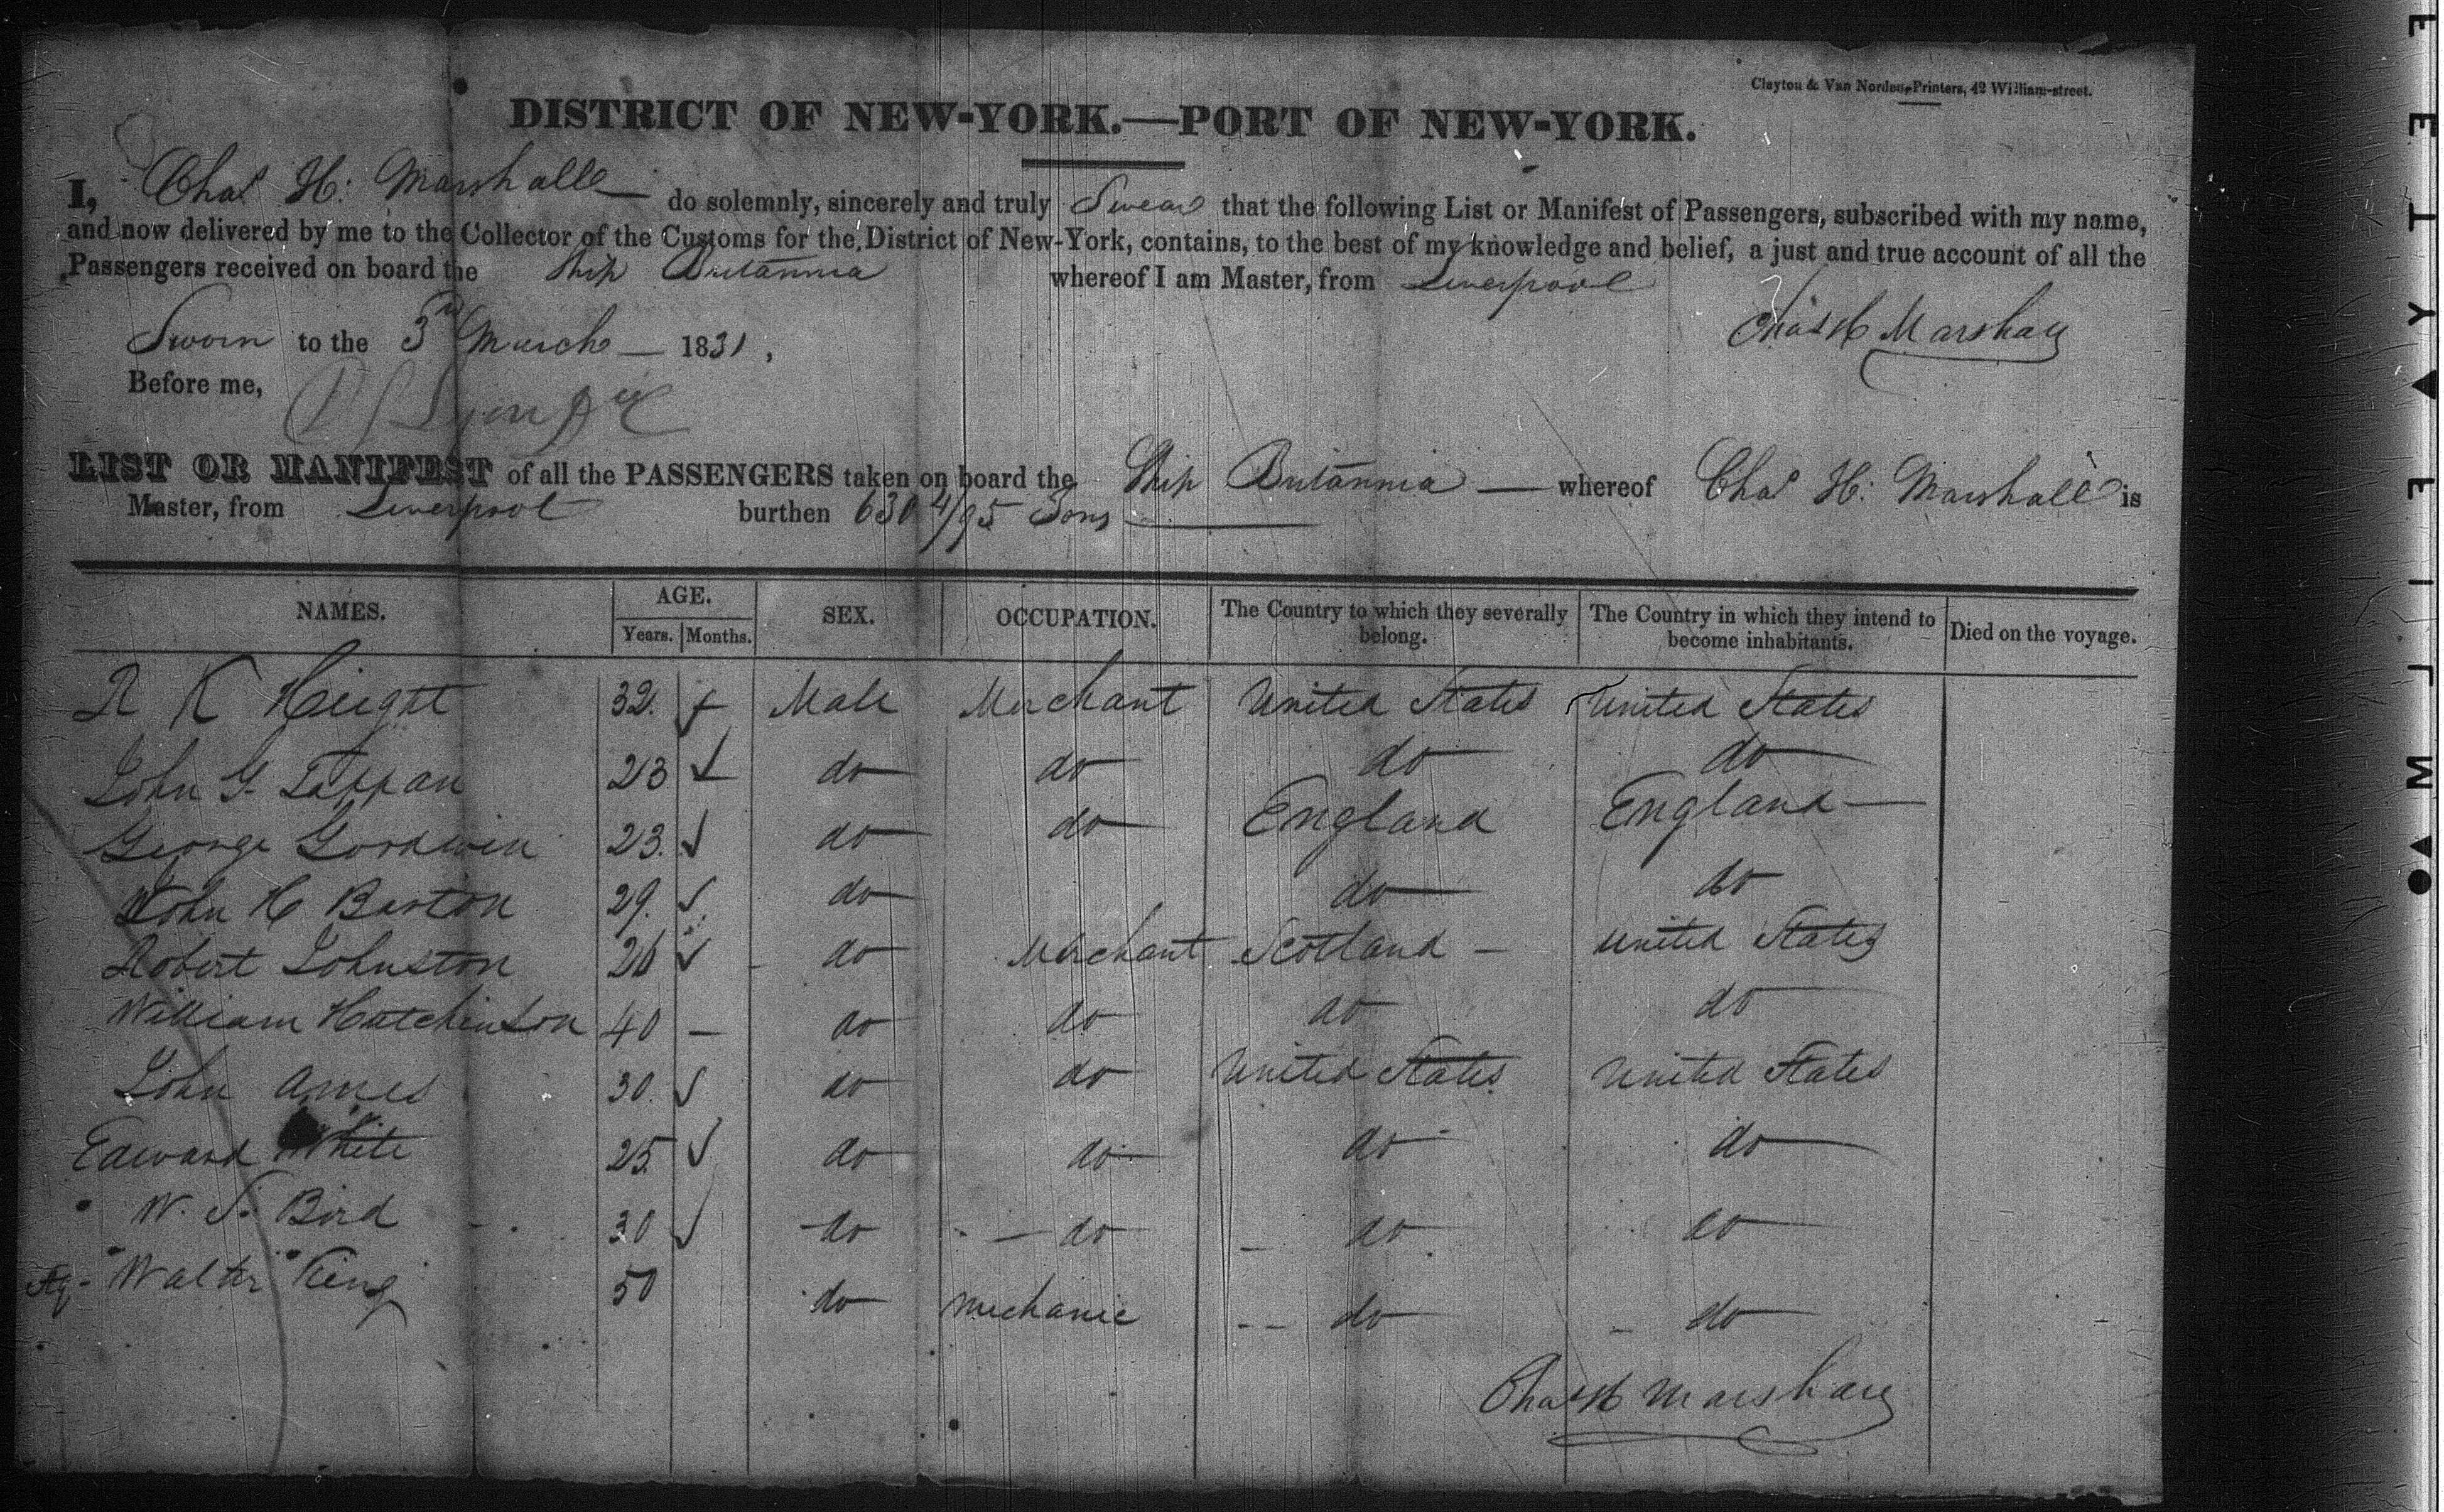 Clayton & Van Norden, Printers, 42 William-street.
DISTRICT OF NEW-YORK.—PORT OF NEW-YORK.
I, Chas H: Marshall — do solemnly, sincerely and truly Swear that the following List or Manifest of Passengers, subscribed with my name,
and now delivered by me to the Collector of the Customs for the District of New-York, contains, to the best of my knowledge and belief, a just and true account of all the
Passengers received on board the Ship Britannia whereof I am Master, from Liverpool
Chas H Marshall
Sworn to the 3rd March — 1831,
Before me,
LIST OR MANIFEST of all the PASSENGERS taken on board the Ship Britannia — whereof Chas H: Marshall is
Master, from Liverpool burthen 630 4/95 Tons
NAMES. AGE. Years. Months. SEX. OCCUPATION. The Country to which they severally belong. The Country in which they intend to become inhabitants. Died on the voyage.
R K Height 32. Male Merchant United States United States
John G. Tappan 23 do do do do
George Goodwin 23. do do England England
John H Barton 29. do do do
Robert Johnston 26 do Merchant Scotland United States
William Hutchinson 40 — do do do do
John Ames 30. do do United States United States
Edward White 25 do do do do
W. S. Bird 30 do do do do
Walter King 50 do Mechanic do do
Chas H Marshall
METTYALFILM